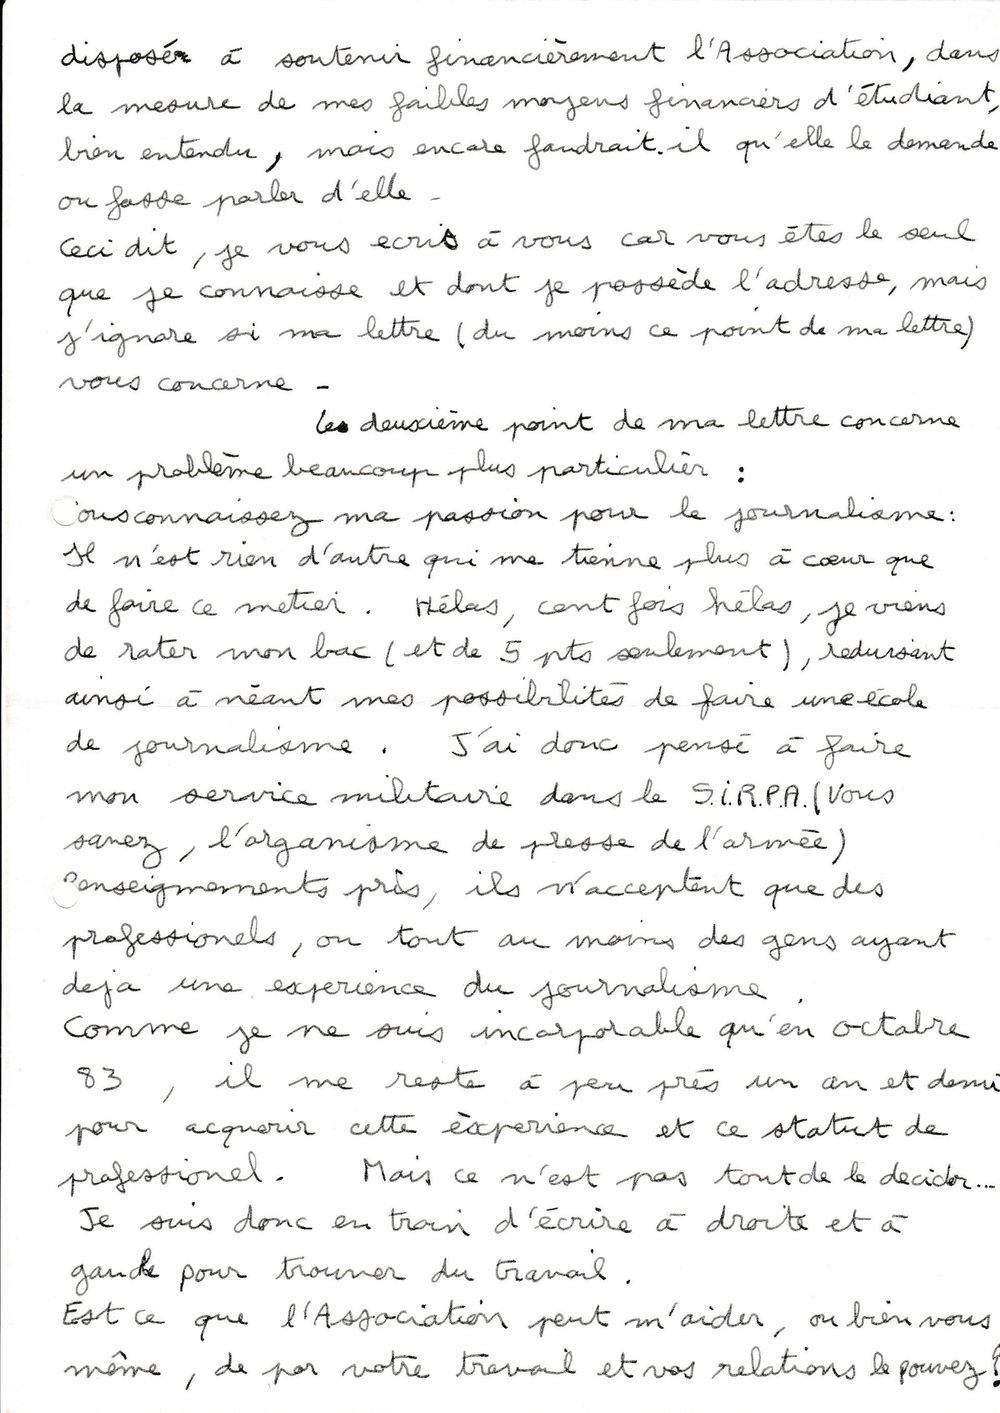 disposér à soutenir financièrement l'Association, dans
la mesure de mes faibles moyens financiers d'étudiant,
bien entendu, mais encore faudrait-il qu'elle le demande
ou fasse parler d'elle -
Ceci dit, je vous ecris à vous car vous êtes le seul
que je connaisse et dont je possède l'adresse, mais
j'ignore si ma lettre (du moins ce point de ma lettre)
vous concerne -
Le deuxième point de ma lettre concerne
un problème beaucoup plus particulier :
Vous connaissez ma passion pour le journalisme :
Il n'est rien d'autre qui me tienne plus à cœur que
de faire ce metier. Hélas, cent fois hélas, je viens
de rater mon bac (et de 5 pts seulement), reduisant
ainsi à néant mes possibilités de faire une école
de journalisme. J'ai donc pensé à faire
mon service militaire dans le S.I.R.P.A. (Vous
savez, l'organisme de presse de l'armée)
Renseignements pris, ils n'acceptent que des
professionels, ou tout au moins des gens ayant
deja une experience du journalisme.
Comme je ne suis incorporable qu'en octobre
83, il me reste à peu près un an et demi
pour acquerir cette èxperience et ce statut de
professionel. Mais ce n'est pas tout de le decider...
Je suis donc en train d'écrire à droite et à
gauche pour trouver du travail.
Est ce que l'Association peut m'aider, ou bien vous
même, de par votre travail et vos relations le pouvez ?